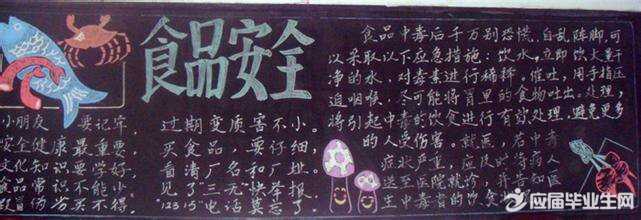 食品安全
小朋友 要记牢,
安全健康最重要
文化知识要学好,
食品常识不能小
过期变质害不小。
买食品,要仔细,
看清厂名和厂址。
见了"三无"快举报,
"12315"电话莫忘了
食品中毒后千万别恐慌,自乱阵脚,可
以采取以下应急措施:饮水,立即饮大量干
净的水,对毒素进行稀释。催吐,用手指压
迫咽喉,尽可能将胃里的食物吐出。处理,
将引起中毒的饮食进行有效处理,避免更多
的人受伤害。就医,若中毒
症状严重,应及时将病人
送至医院就诊,并告知医
生中毒者的饮食
应届毕业生网